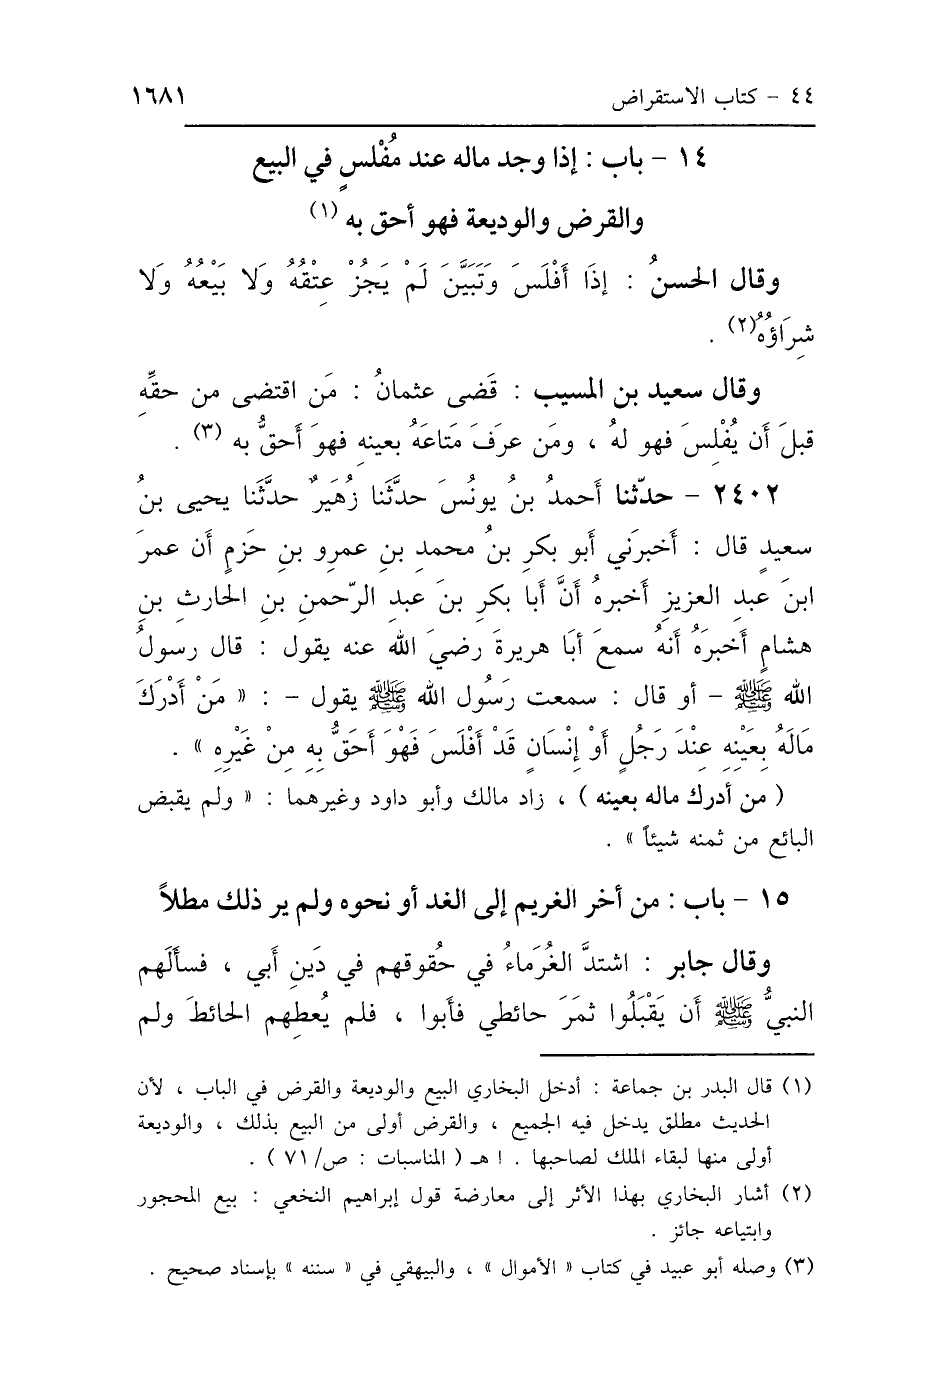 ٤٤ - كتاب الاستقراض ١٦٨١
١٤ - باب : إذا وجد ماله عند مُفْلسٍ في البيع
والقرض والوديعة فهو أحق به (١)
وقال الحسنُ : إذَا أَفْلَسَ وَتَبَيَّنَ لَمْ يَجُزْ عِتْقُهُ وَلا بَيْعُهُ وَلا
شِرَاؤُهُ(٢) .
وقال سعيد بن المسيب : قَضى عثمانُ : مَن اقتضى من حقِّهِ
قبلَ أن يُفْلِسَ فهو لهُ ، ومَن عرَفَ مَتاعَهُ بعينِه فهوَ أحقُّ به (٣) .
٢٤٠٢ - حدّثنا أحمدُ بنُ يونُسَ حدَّثَنا زُهَيرٌ حدَّثَنا يحيى بنُ
سعيدٍ قال : أخبرَني أبو بكرِ بنُ محمدِ بنِ عمرِو بنِ حَزمٍ أن عمرَ
ابنَ عبدِ العزيزِ أخبرهُ أنَّ أبا بكرِ بنَ عبدِ الرّحمنِ بنِ الحارثِ بنِ
هشامٍ أخبرَهُ أنهُ سمعَ أبَا هريرةَ رضيَ الله عنه يقول : قال رسولُ
الله ﷺ - أو قال : سمعت رَسُول الله ﷺ يقول - : « مَنْ أَدْرَكَ
مَالَهُ بِعَيْنِهِ عِنْدَ رَجُلٍ أَوْ إِنْسَانٍ قَدْ أَفْلَسَ فَهْوَ أَحَقُّ بِهِ مِنْ غَيْرِهِ » .
( من أدرك ماله بعينه ) ، زاد مالك وأبو داود وغيرهما : « ولم يقبض
البائع من ثمنه شيئاً » .
١٥ - باب : من أخر الغريم إلى الغد أو نحوه ولم ير ذلك مطلاً
وقال جابر : اشتدَّ الغُرَماءُ في حُقوقهم في دَينِ أبي ، فسألَهم
النبيُّ ﷺ أن يَقْبَلُوا ثمَرَ حائطي فأبوا ، فلم يُعطِهم الحائطَ ولم
(١) قال البدر بن جماعة : أدخل البخاري البيع والوديعة والقرض في الباب ، لأن
الحديث مطلق يدخل فيه الجميع ، والقرض أولى من البيع بذلك ، والوديعة
أولى منها لبقاء الملك لصاحبها . ا هـ ( المناسبات : ص/ ٧١ ) .
(٢) أشار البخاري بهذا الأثر إلى معارضة قول إبراهيم النخعي : بيع المحجور
وابتياعه جائز .
(٣) وصله أبو عبيد في كتاب « الأموال » ، والبيهقي في « سننه » بإسناد صحيح .